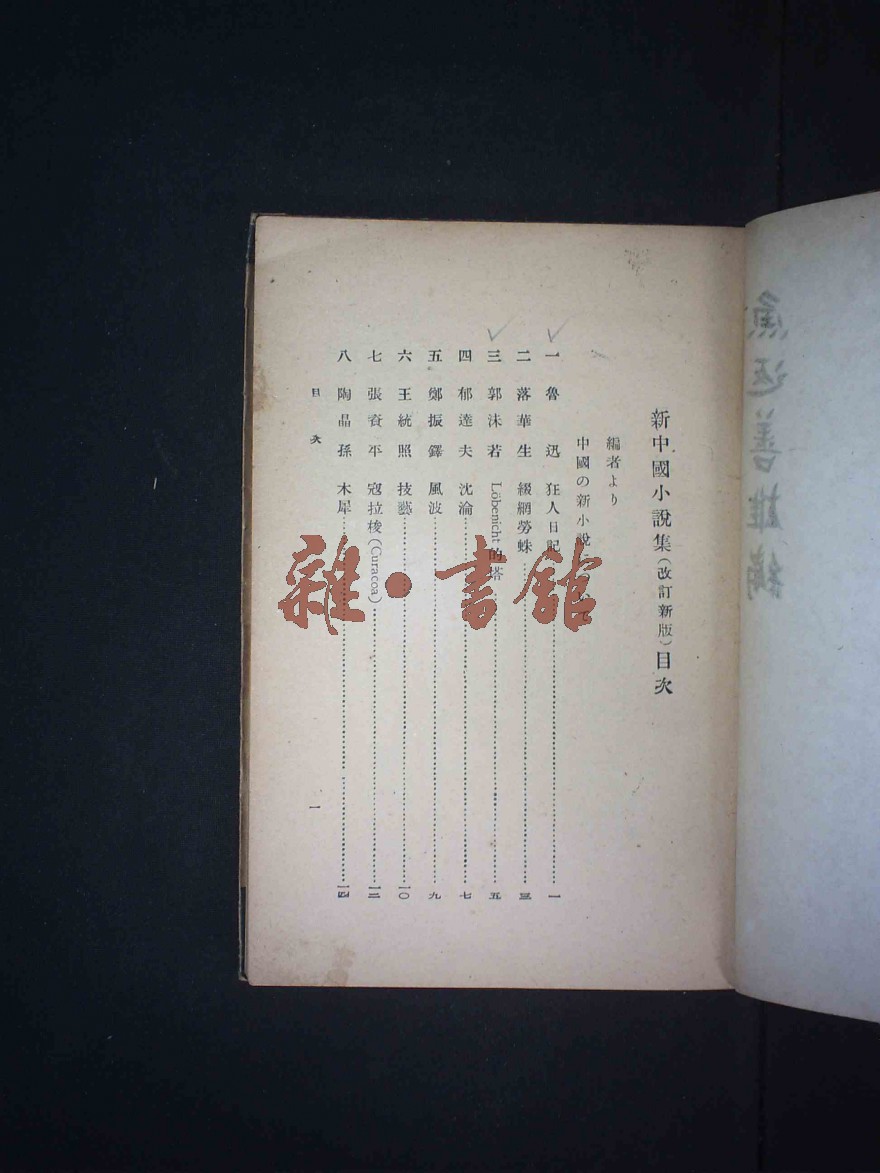 新中國小說集(改訂新版)目次
編者より
中國の新小說
一 魯迅 狂人日記 一
二 落華生 綴網勞蛛 三
三 郭沫若 Löbenicht的塔 五
四 郁達夫 沈淪 七
五 鄭振鐸 風波 九
六 王統照 技藝 一〇
七 張資平 寇拉梭(Curacoa) 一二
八 陶晶孫 木犀 一四
目次
一
雜·書館
魚返善雄編